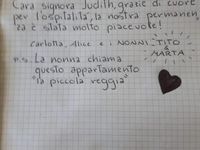 Cara signora Judith, grazie di cuore
per l'ospitalità, la nostra permanen
za è stata molto piacevole!
Carlotta, Alice e i NONNI TITO
e
MARTA
P.S. La nonna chiama
questo appartamento
"la piccola reggia"